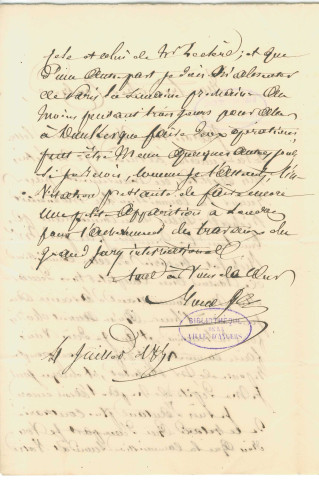 celle et celui de Mr Leclerc; et que
d'une autre part je dois m'absenter
de Paris la semaine prochaine au
moins pendant trois jours pour aller
à Dunkerque faire deux opérations
peut-être même quelques autres, que
je prévois, comme je l'attends, l'in-
vitation pressante de faire encore
une petite apparition à Londres
pour l'achèvement des travaux du
grand jury international
Tout à vous de cœur
BIBLIOTHEQUE
DE LA
4 Juillet 1851